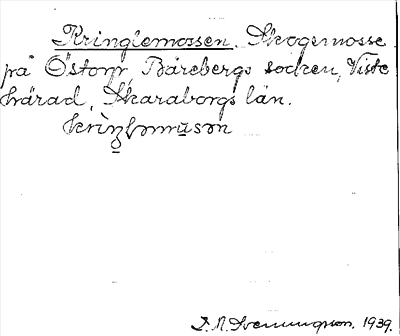 Kringlemossen. Skogsmosse
på Östorp, Bärebergs socken, Viste
härad, Skaraborgs län.
D. A. Svenungsson. 1939.